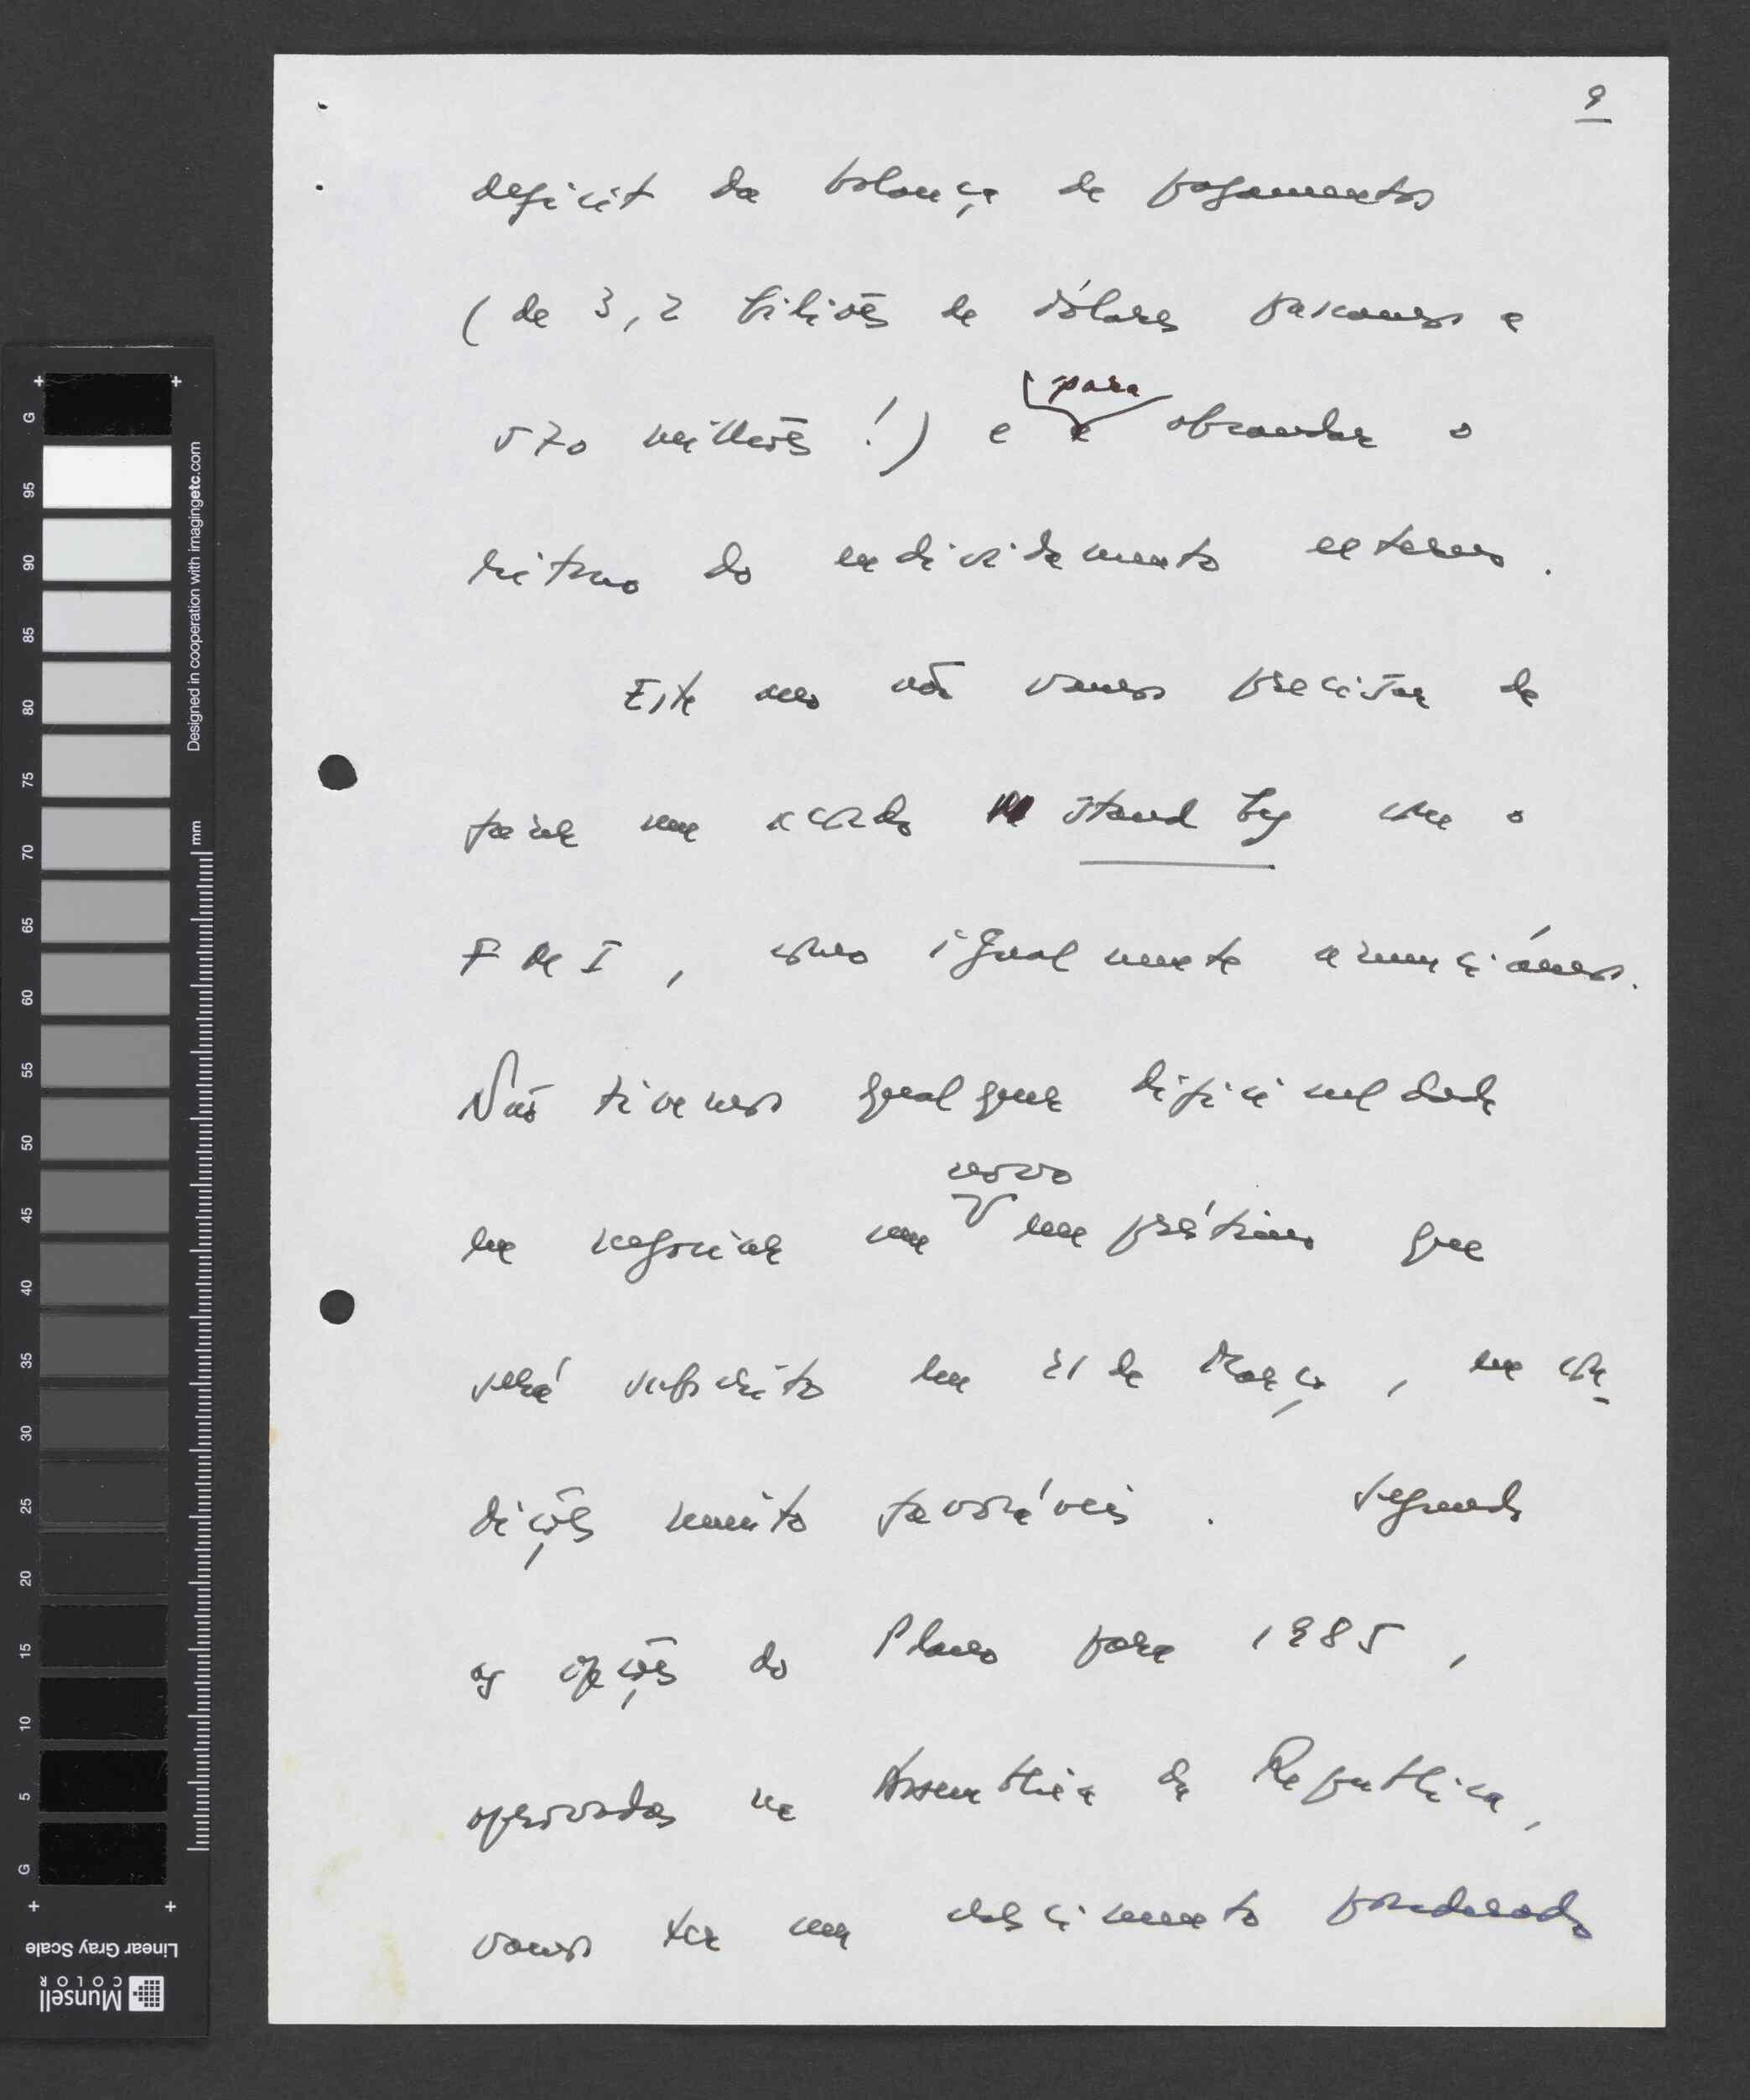 9
deficit da balança de pagamentos
(de 3,2 biliões de dólares passamos a
570 milhões!) e para abrandar o
ritmo do endividamento externo.
Este ano não vamos precisar de
fazer um acordo stand by com o
FMI, como igualmente anunciámos.
Não tivemos qualquer dificuldade
em negociar um novo empréstimo que
será subscrito em 21 de Março, em con-
dições muito favoráveis. Segundo
as opções do Plano para 1985,
aprovadas na Assembleia da Republica,
vamos ter um crescimento ponderado
G
95
90
85
80
75
70
65
60
55
50
45
40
35
30
25
20
15
10
5
G
mm
Designed in cooperation with imagingetc.com
Linear Gray Scale
Munsell
COLOR